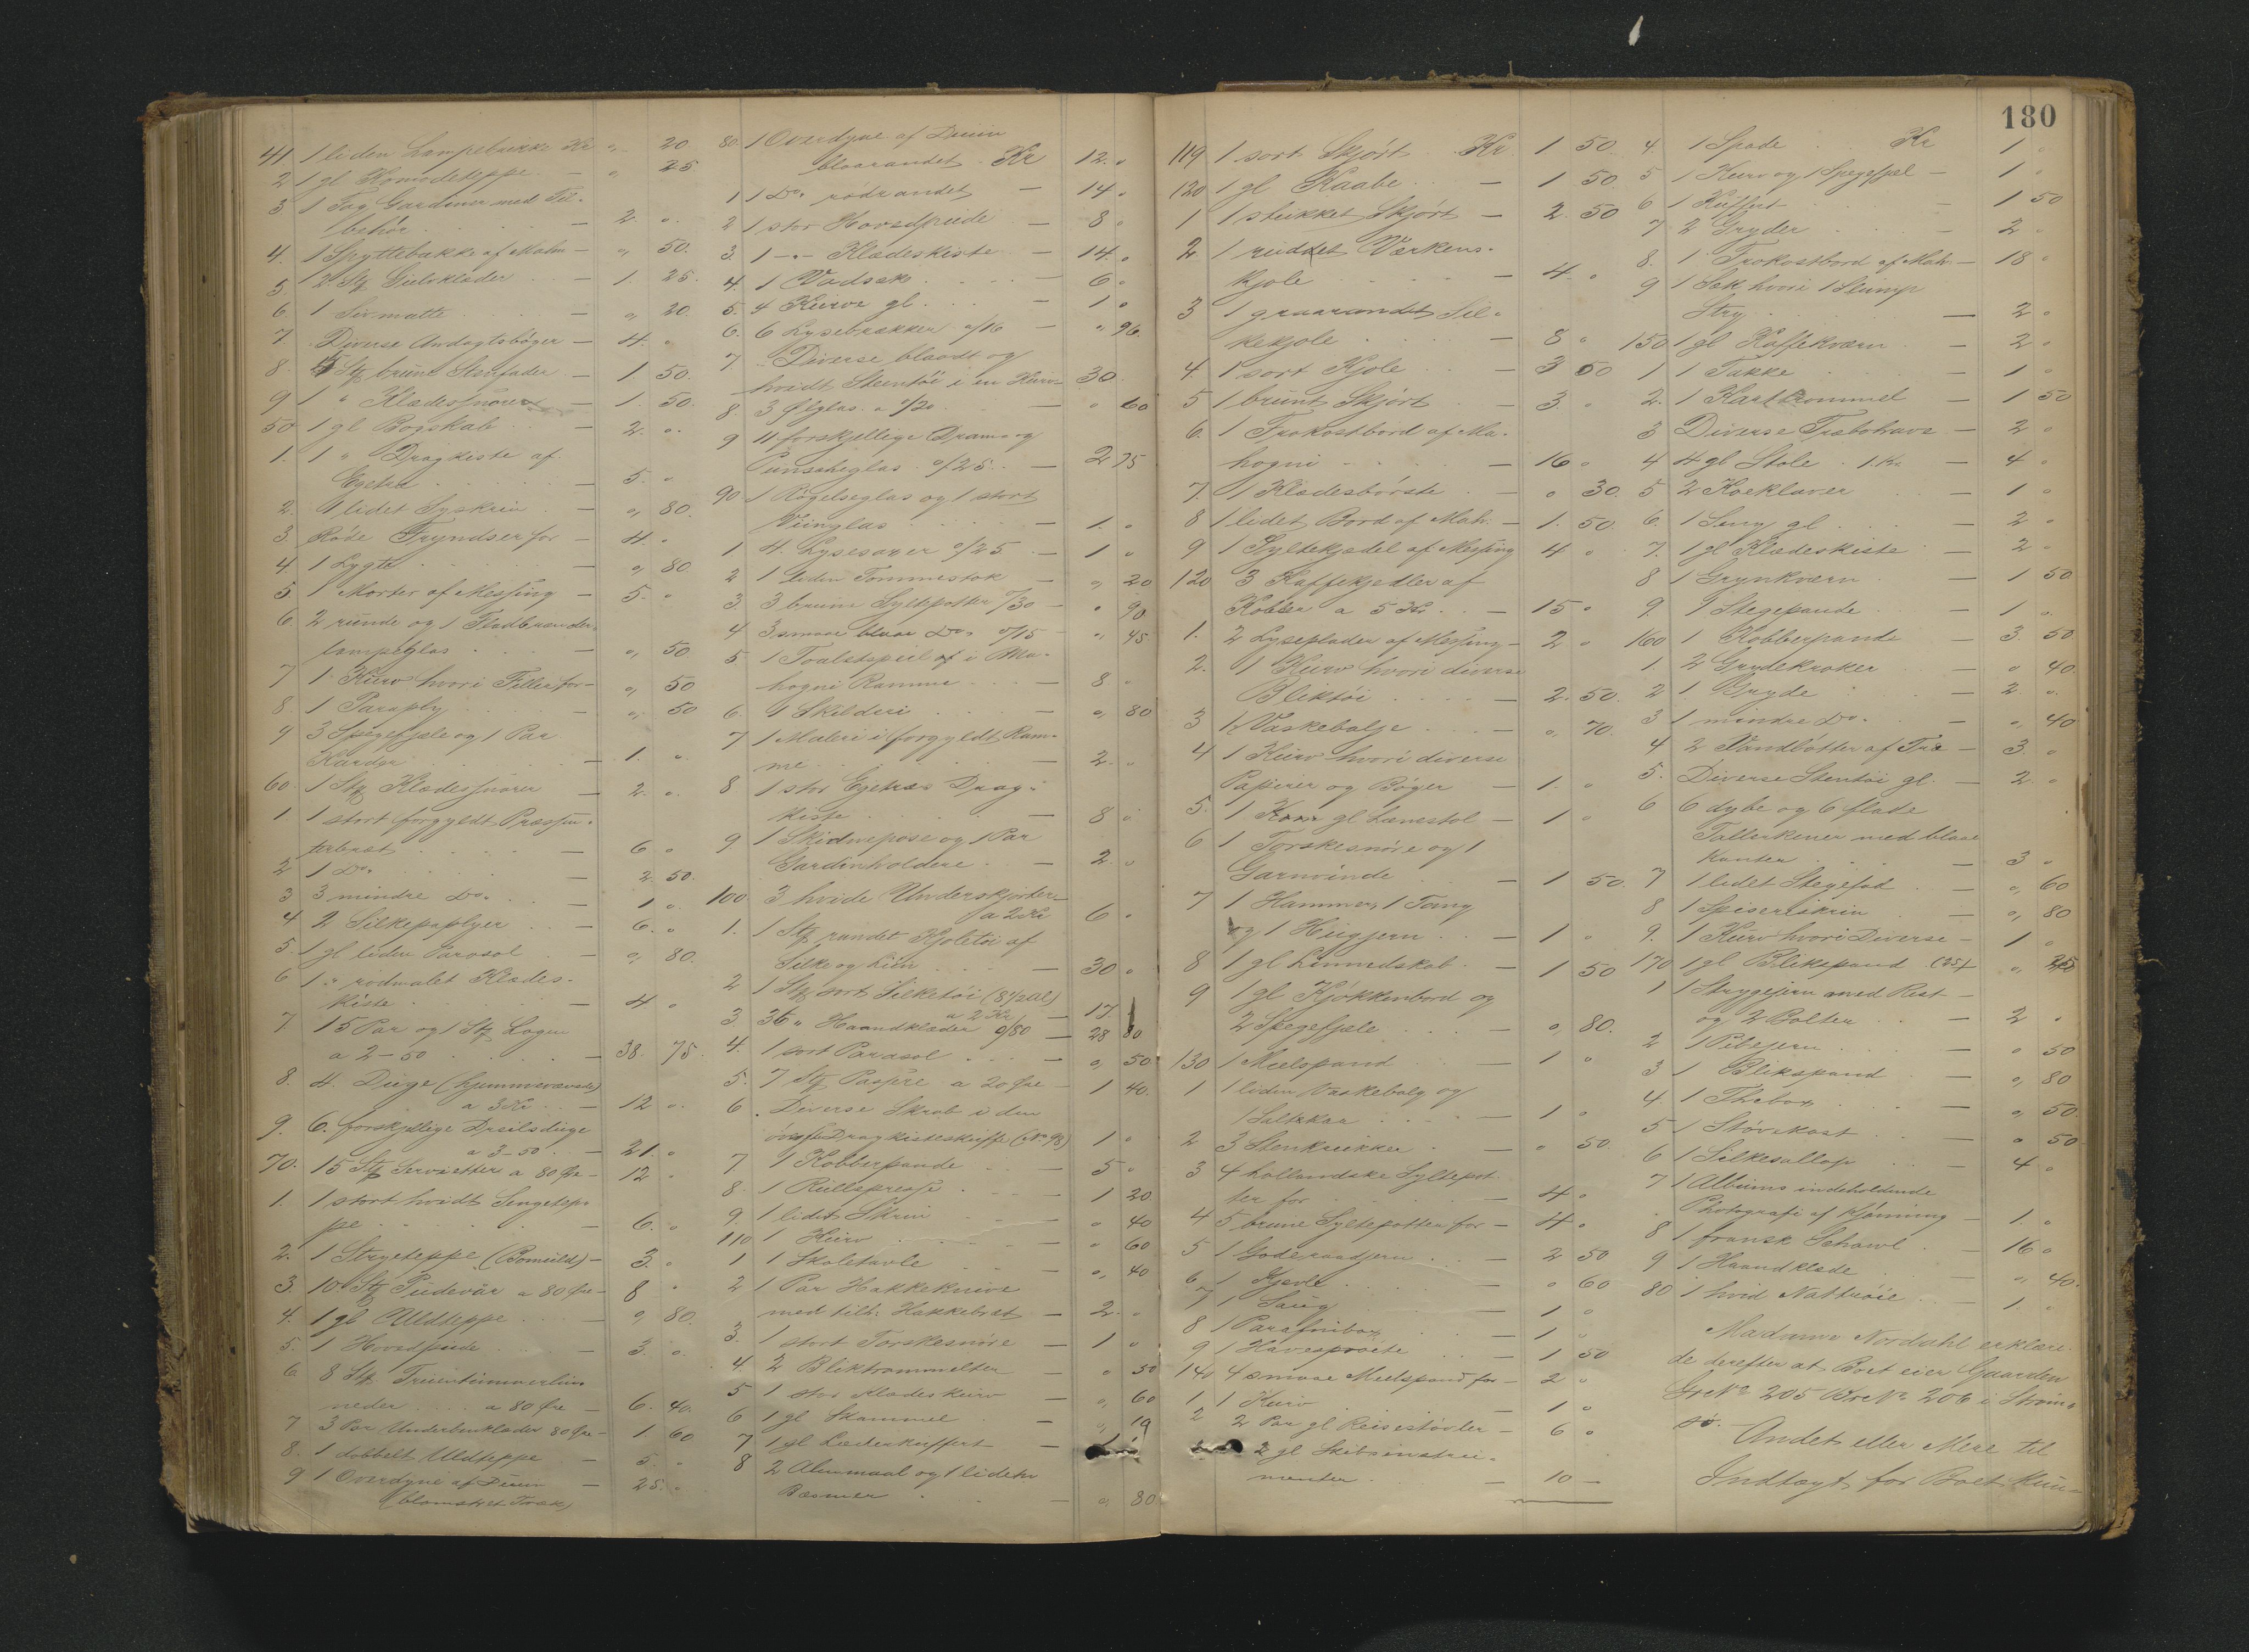 180
41. 1 liden Lampebrikke Kr „ 20
2 1 gl Komodeteppe — „ 25
3 1 Fag Gardiner med Til-
behör — 2. „
4. 1 Spyttebakke af Malm — „ 50.
5 2 Stk Gulvklæder — 1. 25.
6. 1 Sivmatte — „ 20.
7 Diverse Andagtsböger — 4. „
8. 4 Stk brune Stenfader — 1 50.
9 1 „ Klædessnorer — 1. 50.
50 1 gl Bogskab — 2. „
1. 1 „ Dragkiste af
Egetræ — 5. „
2. 1 lidet Syskrin — „ 80.
3. Röde Tryndser for — 4. „
4 1 Lygte — „ 80.
5 1 Morter af Messing — 5. „
6 2 runde og 1 Fladbrænder-
lampeglas — „ 50
7 1 Kurv hvori Filler for — „ 50
8. 1 Paraply — „ 50
9 3 Spegefjæle og 1 Par
Karder — 1. „
60. 1 Stk Klædessnorer — 2. „
1 1 stort forgyldt Præssen-
terbræt — 6 „
2 1 Do. — 2. 50.
3 3 mindre Do. — 1 „
4 2 Silkepaplyer — 6. „
5. 1 gl liden Parasol — „ 80.
6 1 „ rödmalet Klædes-
kiste — 4 „
7 15 Par og 1 Stk Lagen
a 2-50 — 38. 75.
8. 4. Duge (hjemmevævede)
a 3 Kr — 12 „
9. 6. forskjellige Dreilsduge
a 3-50 — 21. „
70. 15 Stk Servietter a 80 Öre — 12 „
1. 1 stort hvidt Sengetep-
pe — 6. „
2. 1 Stryeteppe (Bomuld) — 3. „
3. 10 Stk Pudevår a 80 Öre — 8 „
4. 1 gl Uldteppe — „ 80.
5. 1 Hovedpude — 3. „
6 8 Stk Fruentimmerlin-
neder a 80 Öre — 6. 40.
7 3 Par Underbenklæder 80 Öre — 1. 60
8. 1 dobbelt Uldteppe — 5. „
9 1 Overdyne af Duun — 25. „
(blomstret Træk)
80. 1 Overdyne af Duun
blaarandet Kr 12. „
1 1 Do. rödrandet — 14 „
2 1 stor Hovedpude — 8 „
3. 1 -„- Klædeskiste — 14. „
4. 1 Vadsæk — 6 „
5. 4 Kurve gl. — 1 „
6. 6 Lysebrækker a/16 — „ 96.
7 Diverse blaadt og
hvidt Steentöi i en Kurv — 30
8. 3 Ölglas a/20 — „ 60
9 11 forskjellige Drams og
Punscheglas a/25 — 2 75
90 1 Rögelseglas og 1 stort
Viinglas — 1. „
1 4. Lysesaxer a/25 — 1 „
2 1 liden Tommestok — „ 20
3. 3 brune Syltepotter a/30 — „ 90
4 3 smaa blaae Do. a/15 — „ 45
5. 1 Toaletspeil i Ma-
hogni Ramme — 8 „
6. 1 Skilderi — „ 80
7 1 Maleri i forgyldt Ram-
me — 2. „
8 1 stor Egetræs Drag-
kiste — 8 „
9 1 Skidnepose og 1 Par
Gardinholdere — 2. „
100 3 hvide Underskjörter
a 2 Kr 6 „
1. 1 Stk randet Kjoletöi af
Silke og Liin — 30 „
2 1 Stk sort Silketöi (8½ Al)
a 2 Kr — 17.
3. 36 „ Haandklæder a/80 — 28 80
4. 1 sort Parasol — „ 50
5. 7 Stk Paspere a 20 Öre — 1 40.
6. Diverse Skrab i den
överste Dragkisteskuffe (No 98) 1 „
7 1 Kobberpande — 5 „
8. 1 Rullepresse — 1 20
9. 1 lidet Skrin — „ 40
110 1 Kurv — „ 60
1 1 Skoletavle — „ 40
2 1 Par Hakkeknive
med tilh. Hakkebræt — 2. „
3. 1 stort Torskesnöre — 1 „
4 2 Bliktrommelter — „ 50
5 1 stor Klædeskurv — „ 60
6 1 gl Skammel — „ 10
7 1 gl Læderkuffert —
8 2 Alenmaal og 1 lideten
Bæsmer — „ 80
119 1 sort Skjört Kr. 1 50.
120 1 gl Kaabe — 1 50
1 1 stukket Skjört — 2. 50
2. 1 rudet Værkens-
kjole — 4. „
3 1 graarandet Sil-
kekjole — 8 „
4. 1 sort Kjole — 3 50
5 1 brunt Skjört — 3. „
6. 1 Frokostbord af Ma-
hogni — 16 „
7. 1 Klædesbörste — „ 30.
8 1 lidet Bord af Mah. — 1. 50.
9 1 Syltekjedel af Messing 4 „
120 3 Kaffekjedler af
Kobber a 5 Kr. — 15 „
1. 2 Lyseplader af Messing — 2 „
2. 1 Kurv hvori diverse
Bliktöi — 2. 50.
3 ½ Vaskebalje — „ 70.
4 1 Kurv hvori diverse
Papirer og Böger — 1. „
5. 1 gl Lænestol — 1 „
6 1 Torskesnöre og 1
Garnvinde — 1 50.
7 1 Hammer, 1 Tang
og 1 Hugjern — 1 „
8 1 gl Linnedskab — 1 50
9 1 gl Kjökkenbord og
2 Spegefjæle — „ 80.
130 1 Meelspand — 1 „
1 1 liden Vaskebalg og
1 Saltekar — 1 „
2 3 Stenkrukker — „ 50.
3 4 hollandske Syltepot
ter for — 4 „
4 5 brune Syltepotter for — 4. „
5 1 Goderaadjern — 2 50
6 1 Kjævle — „ 60
7 1 Saug — 1 „
8 1 Parafinbox — 1 „
9 1 Havesproite — 1 50
140 4 smaae Meelspand for — 2 „
1 1 Kurv — 1 „
2 2 Par gl Reisestövler — 6 „
2 gl Skibsinstru-
menter — 10 —
4. 1 Spade Kr 1 „
5 1 Kurv og 1 Spegefjæl — 1 „
6 1 Kuffert — 1 50
7 2 Gryder — 2 „
8. 1 Frokostbord af Mah. — 18 „
9 1 Sæk hvori 1 Slump
Stry — 2 „
150 1 gl Kaffekværn — 2 „
1 1 Takke — 1 „
2. 1 Kartrommel — 1 50
3 Diverse Træbohave — 2 „
4 4 gl Stole 1. Kr — 4 „
5 2 Koeklaver — 1 „
6. 1 Seng gl — 2 „
7. 1 gl Klædeskiste — 2 „
8 1 Grynkværn — 1 50
9. 1 Stegepande — 1 „
160 1 Kobberpande — 3. 50
1. 2 Grydekroker — „ 40.
2 1 Gryde — 2 „
3 1 mindre Do. — „ 40
4 2 Vandbötter af Træ — 3. „
5. Diverse Stentöi gl. — 2 „
6 6 dybe og 6 flade
Tallerkener med blaae
Kanter — 3 „
7 1 lidet Stegefad — „ 60
8 1 Spiseriskrin — „ 80
9. 1 Kurv hvori Diverse — 1 „
170 1 gl Blikspand (25) — „ 25
1 1 Strygejern med Rist
og 2 Bolter — 2 „
2 1 Pibejern — „ 50
3 1 Blikspand — „ 80
4 1 Thebox — „ 50.
5 1 Stövekost — „ 50
6 1 Silkesallop — 4 „
7 1 Albums indeholdende
Photografi af — 1. „
8 1 fransk Schawl — 16 „
9 1 Haandklæde — „ 40.
80 1 hvid Nattröie — 1. „
Madame Nordahl erklære-
de derefter at Boet eier Gaarden
Gr No 205 Br No 206 i Ström-
sö. Andet eller Mere til
Indtægt for Boet kun-